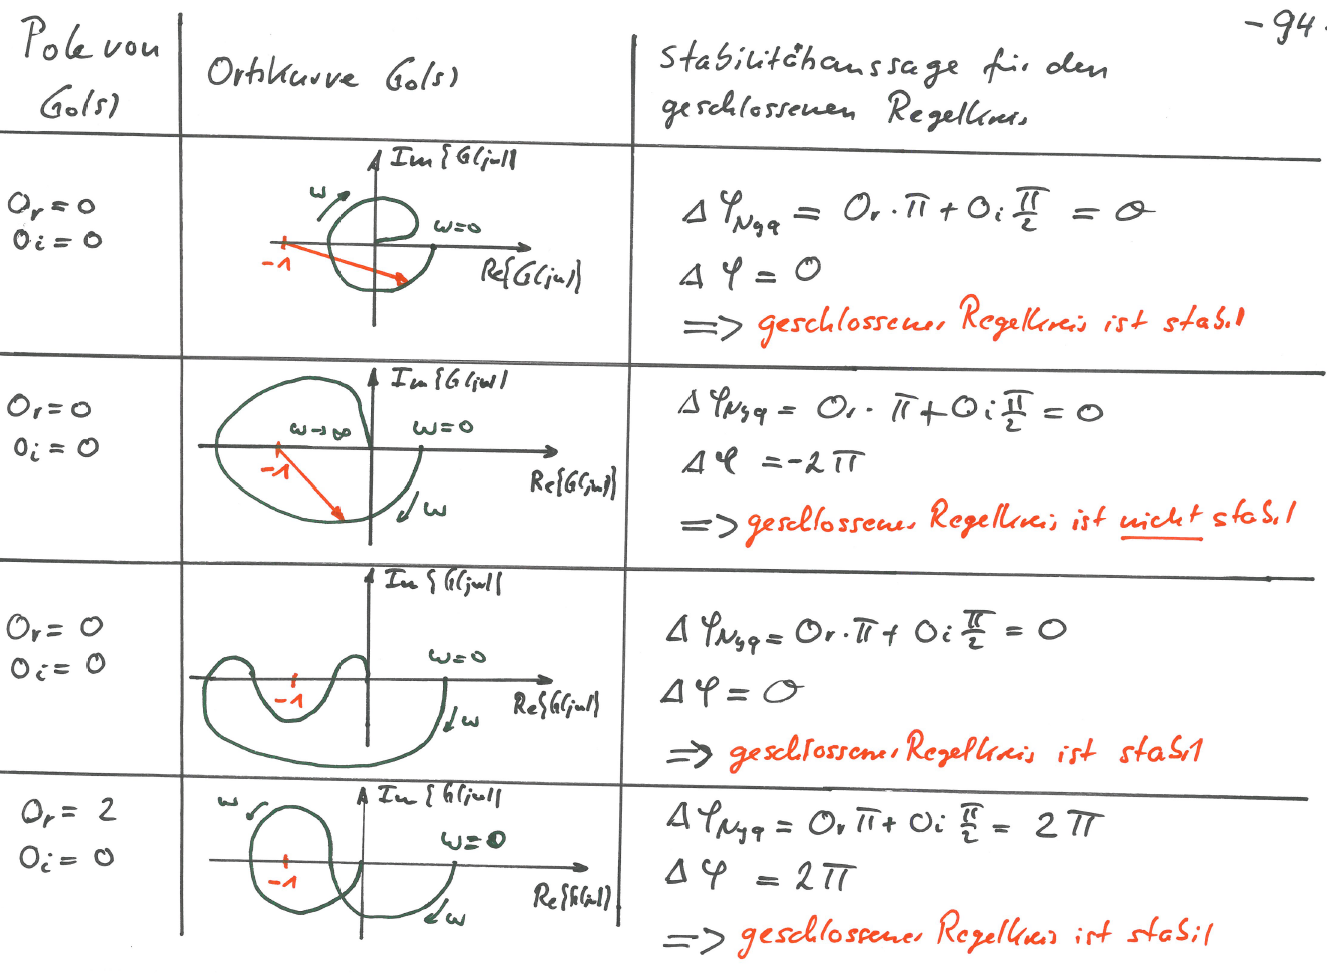 - 94 -
Pole von
Go(s)
Ortskurve Go(s)
Stabilitätsaussage für den
geschlossenen Regelkreis
Or = 0
Oi = 0
Im{G(jω)}
ω
ω=0
-1
Re{G(jω)}
Δφ_Nyq = Or · π + Oi π/2 = 0
Δφ = 0
=> geschlossener Regelkreis ist stabil
Or = 0
Oi = 0
Im{G(jω)}
ω→∞
ω=0
-1
Re{G(jω)}
ω
Δφ_Nyq = Or · π + Oi π/2 = 0
Δφ = -2π
=> geschlossener Regelkreis ist nicht stabil
Or = 0
Oi = 0
Im{G(jω)}
ω=0
-1
Re{G(jω)}
ω
Δφ_Nyq = Or · π + Oi π/2 = 0
Δφ = 0
=> geschlossener Regelkreis ist stabil
Or = 2
Oi = 0
ω
Im{G(jω)}
ω=0
-1
Re{G(jω)}
ω
Δφ_Nyq = Or π + Oi π/2 = 2π
Δφ = 2π
=> geschlossener Regelkreis ist stabil